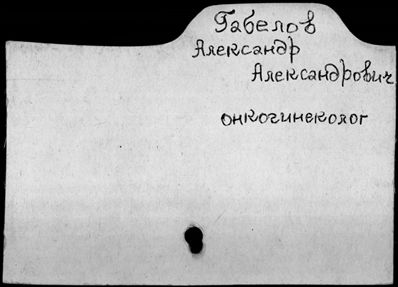 Габелов
Александр
Александрович
онкогинеколог